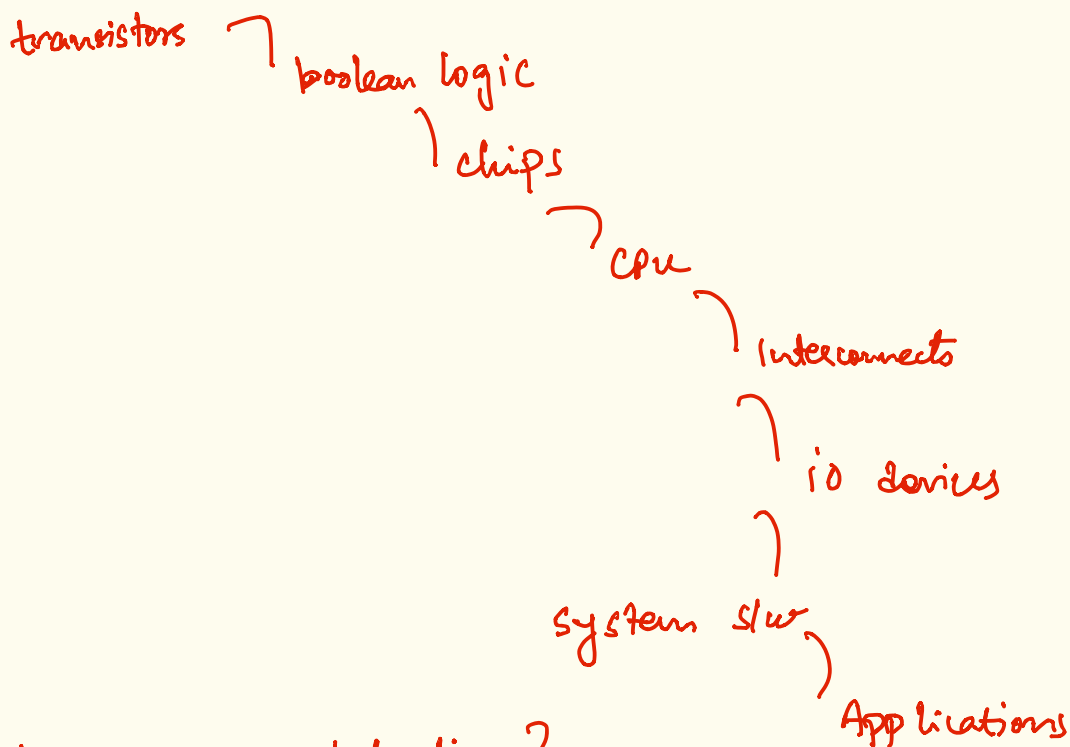 transistors
boolean logic
chips
cpu
interconnects
io devices
system s/w
Applications
?